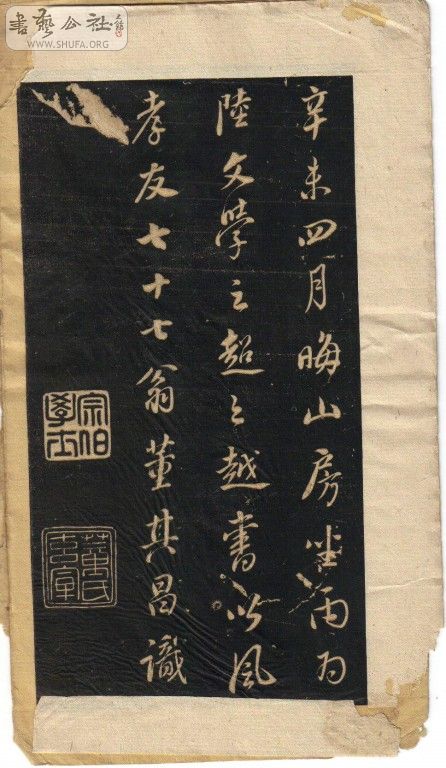 書藝公社
WWW.SHUFA.ORG
辛未四月晦山房坐雨为
陸文學之超之越書此風
孝友七十七翁董其昌識
宗伯學士
董氏玄宰